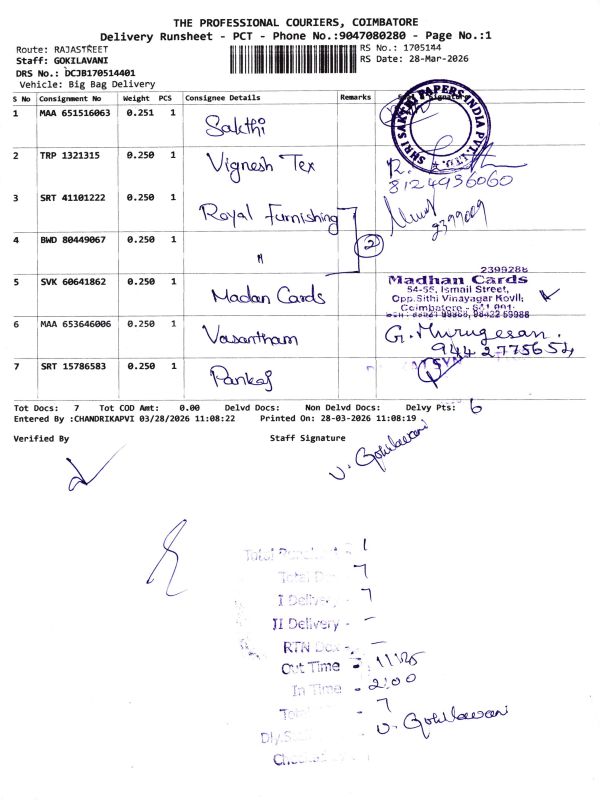 THE PROFESSIONAL COURIERS, COIMBATORE
Delivery Runsheet - PCT - Phone No.:9047080280 - Page No.:1
Route: RAJASTREET
RS No.: 1705144
Staff: GOKILAVANI
RS Date: 28-Mar-2026
DRS No.: DCJB170514401
Vehicle: Big Bag Delivery
S No Consignment No Weight PCS Consignee Details Remarks
1 MAA 651516063 0.251 1 Sakthi
SHRI SAKTHI PAPERS INDIA PVT. LTD.
2 TRP 1321315 0.250 1 Vignesh Tex
8124936060
3 SRT 41101222 0.250 1 Royal Furnishing
2399009
4 BWD 80449067 0.250 1 " 2
5 SVK 60641862 0.250 1 Madan Cards
2399288
Madhan Cards
54-55, Ismail Street,
Opp.Sithi Vinayagar Kovil,
Coimbatore - 641 001.
6 MAA 653646006 0.250 1 Vasantham G. Murugesan.
9442775654
7 SRT 15786583 0.250 1 Pankaj
Tot Docs: 7 Tot COD Amt: 0.00 Delvd Docs: Non Delvd Docs: Delvy Pts: 6
Entered By :CHANDRIKAPVI 03/28/2026 11:08:22 Printed On: 28-03-2026 11:08:19
Verified By Staff Signature
V. Gokilavani
1
7
I Delivery - 7
II Delivery - -
RTN Dox - -
Out Time - 11:25
In Time - 2:00
7
V. Gokilavani